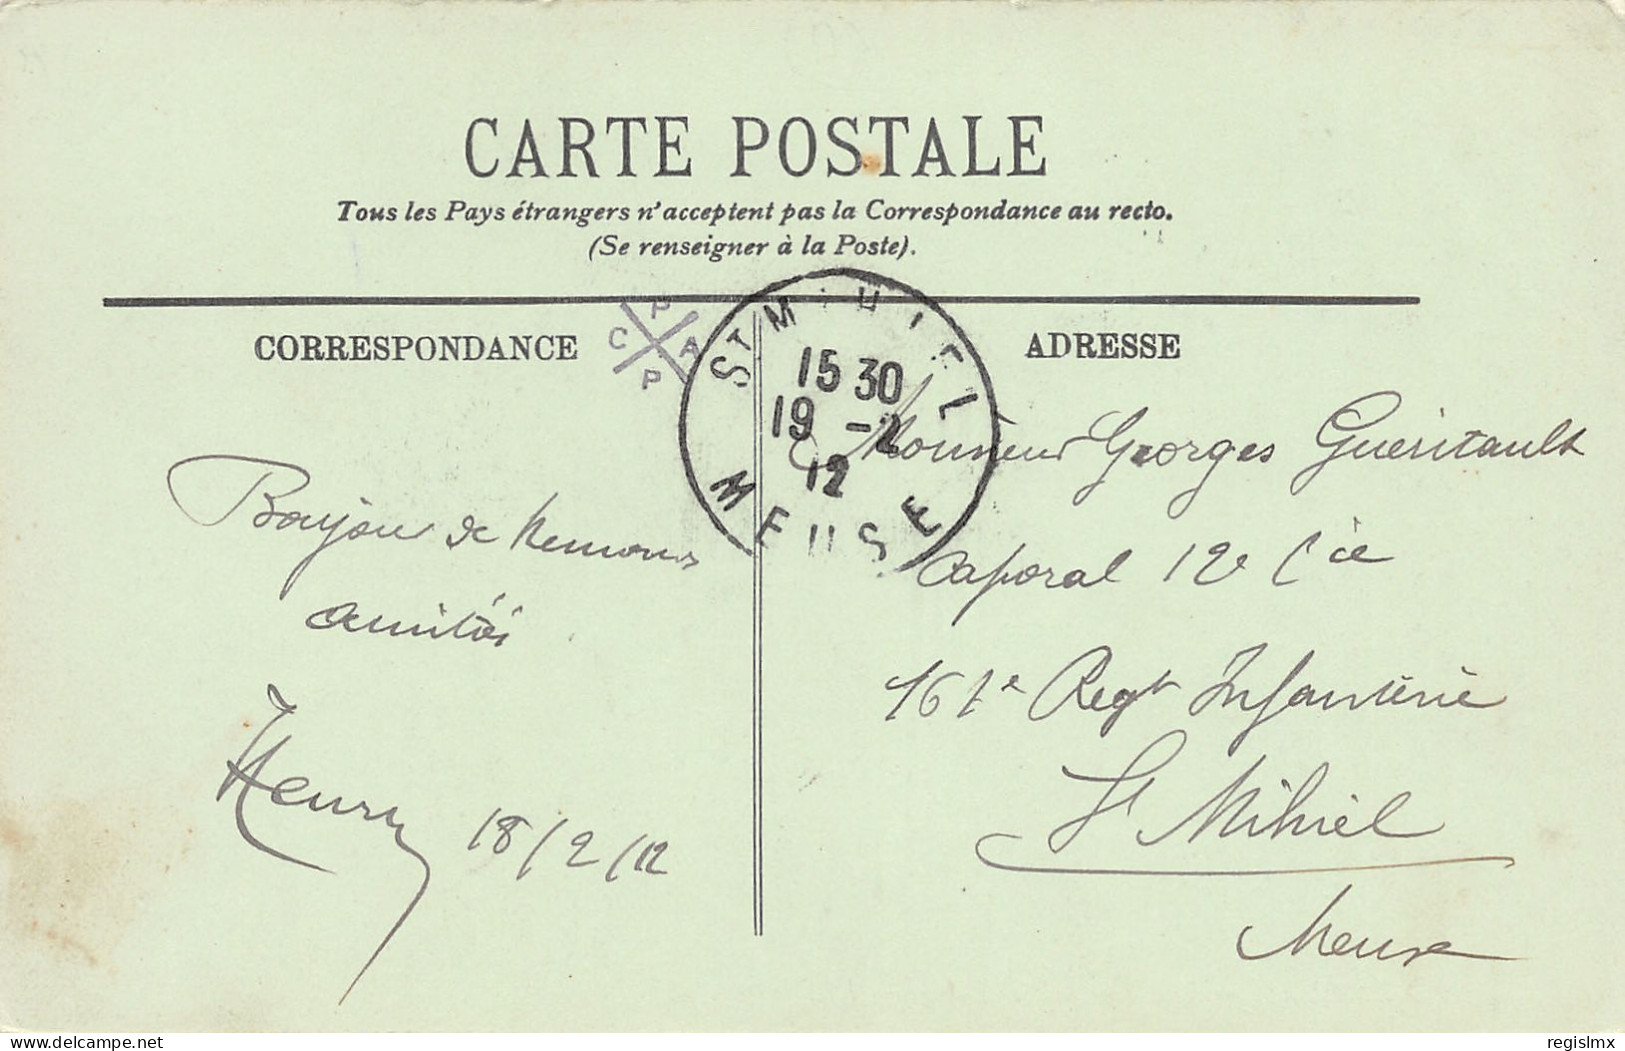 CARTE POSTALE
Tous les Pays étrangers n'acceptent pas la Correspondance au recto.
(Se renseigner à la Poste).
CORRESPONDANCE
ADRESSE
C P A P
ST MIHIEL
15 30
19 -2
12
MEUSE
Bonjour de Nemours
amitiés
Henry
18/2/12
Monsieur Georges Gueritault
Caporal 12e Cie
161e Regt Infanterie
St Mihiel
Meuse
www.delcampe.net
regislmx